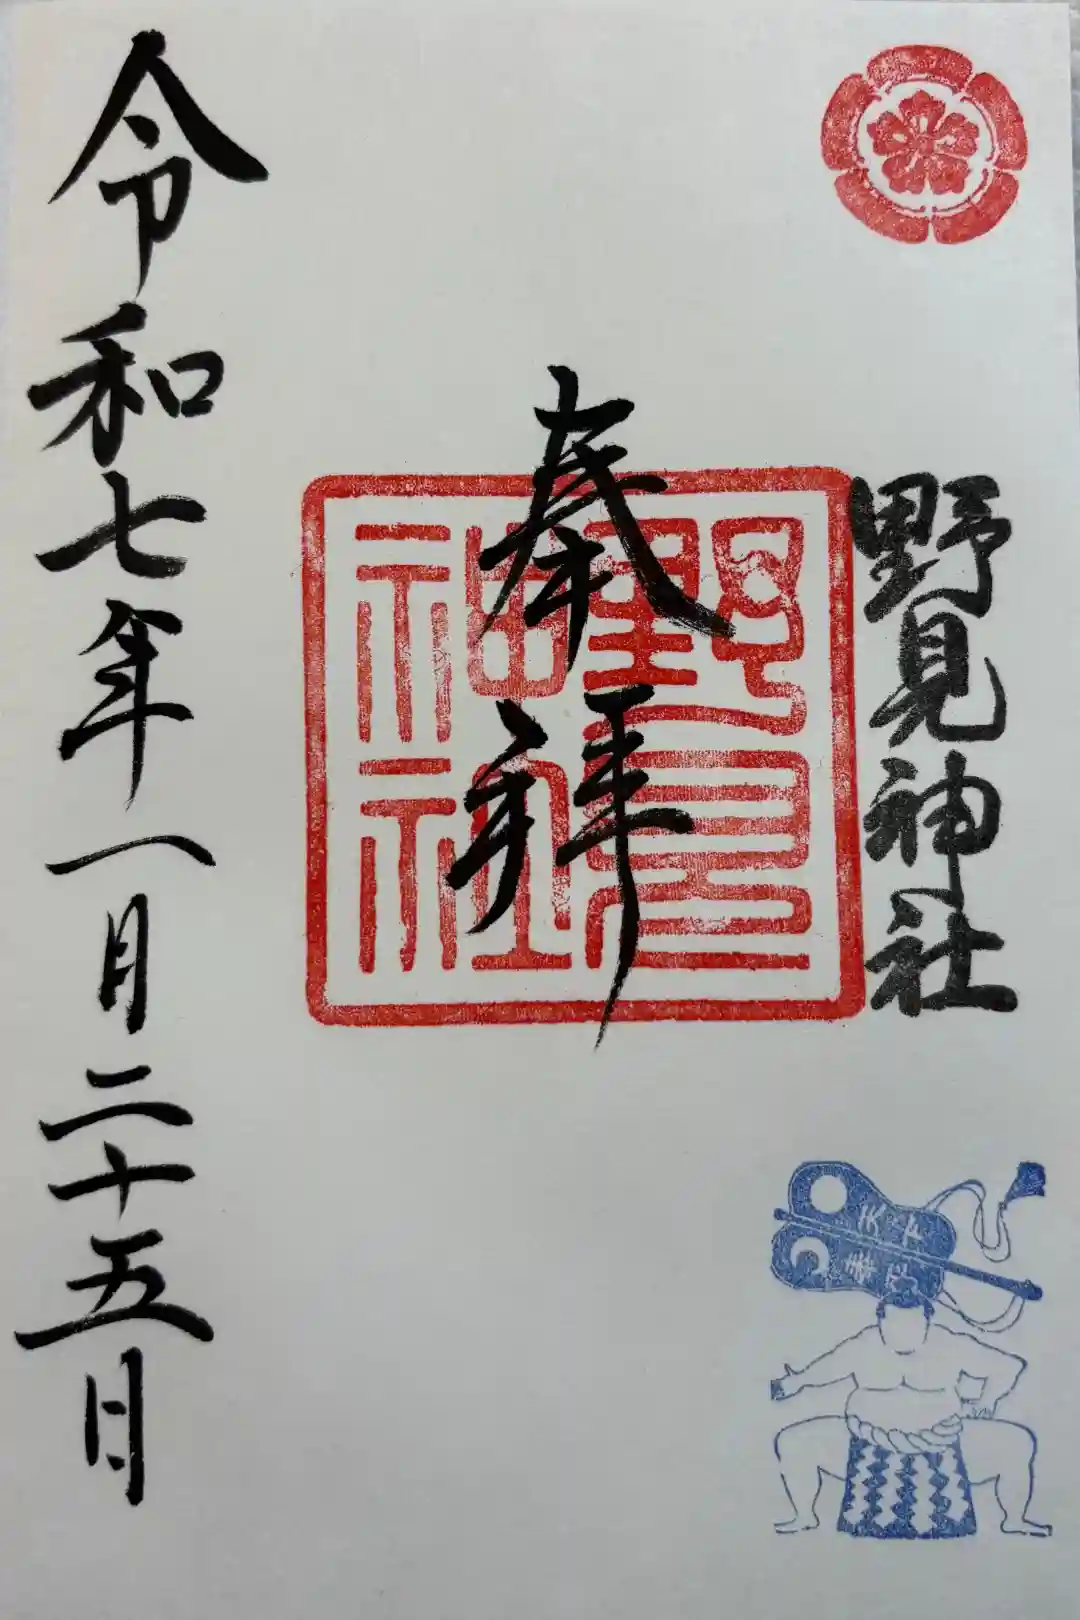 野見神社
奉拝
野見神社
令和七年一月二十五日
天下泰平